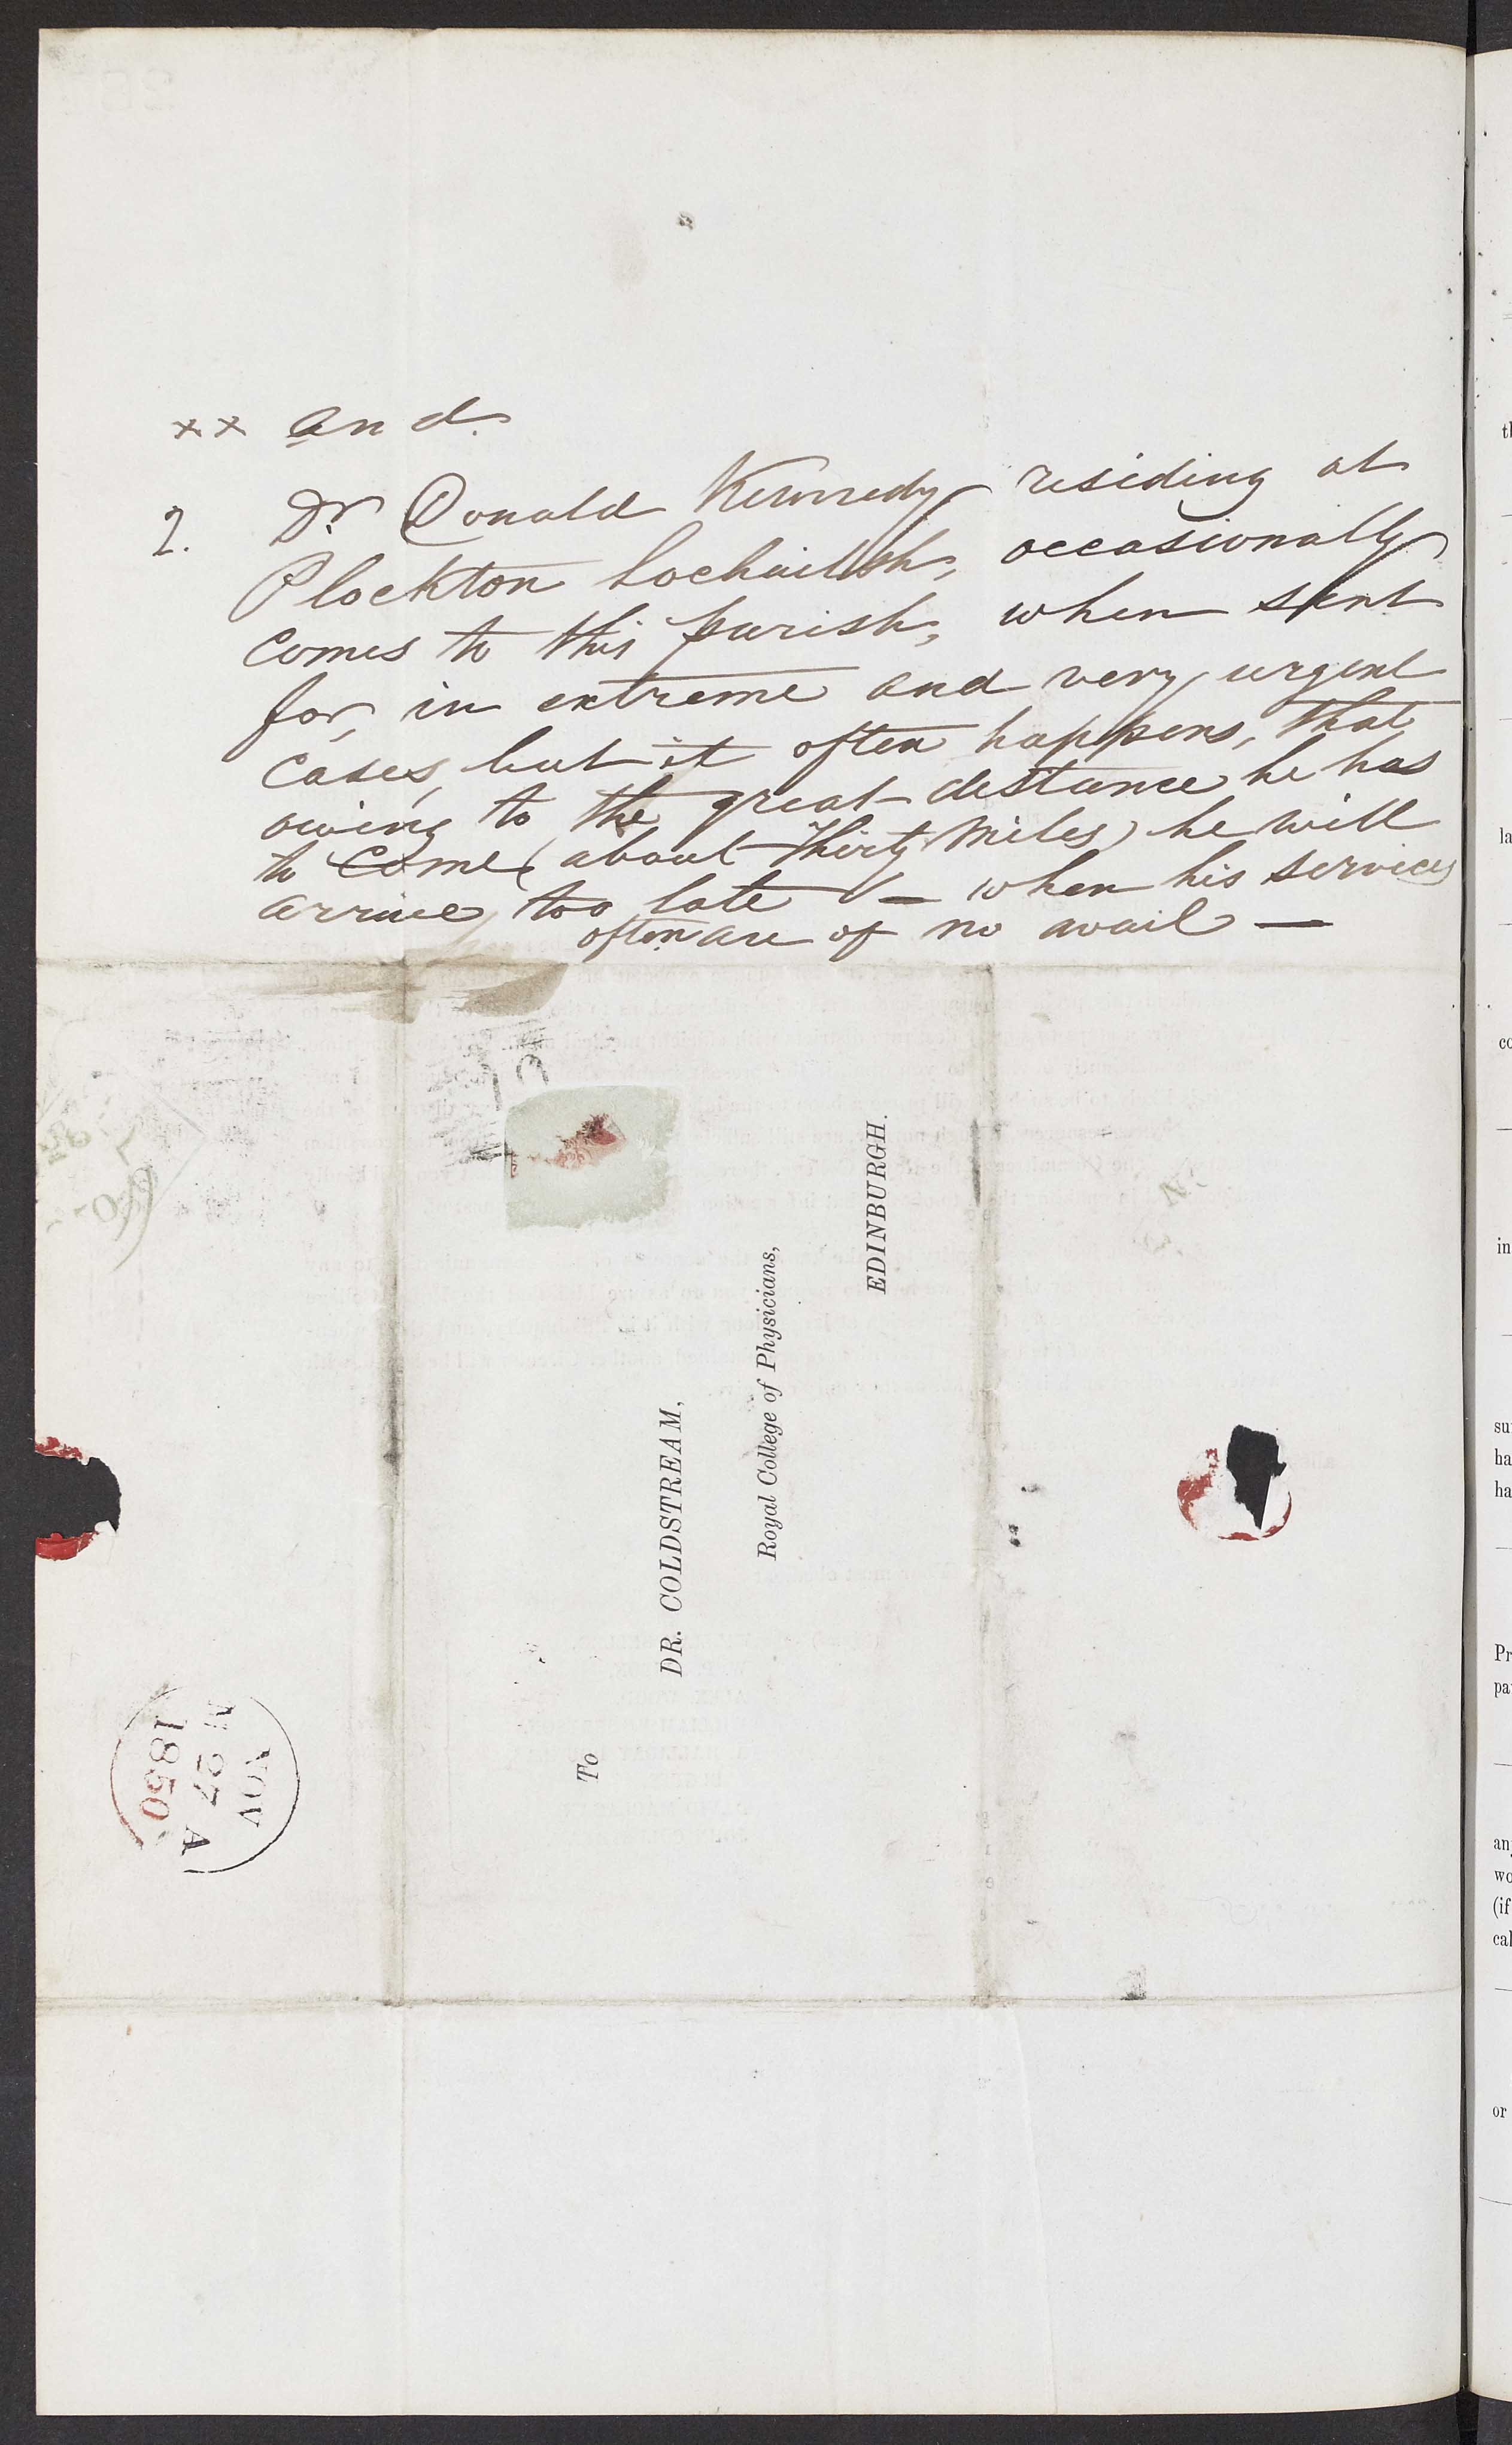 xx and
2. Dr Donald Kennedy residing at
Plockton Lochailsh, occasionally
comes to this parish, when sent
for, in extreme and very urgent
cases, but it often happens, that
owing to the great distance he has
to come (about Thirty Miles) he will
arrive too late — when his services
often are of no avail —
To
DR. COLDSTREAM,
Royal College of Physicians,
EDINBURGH.
NOV
N 27 A
1850